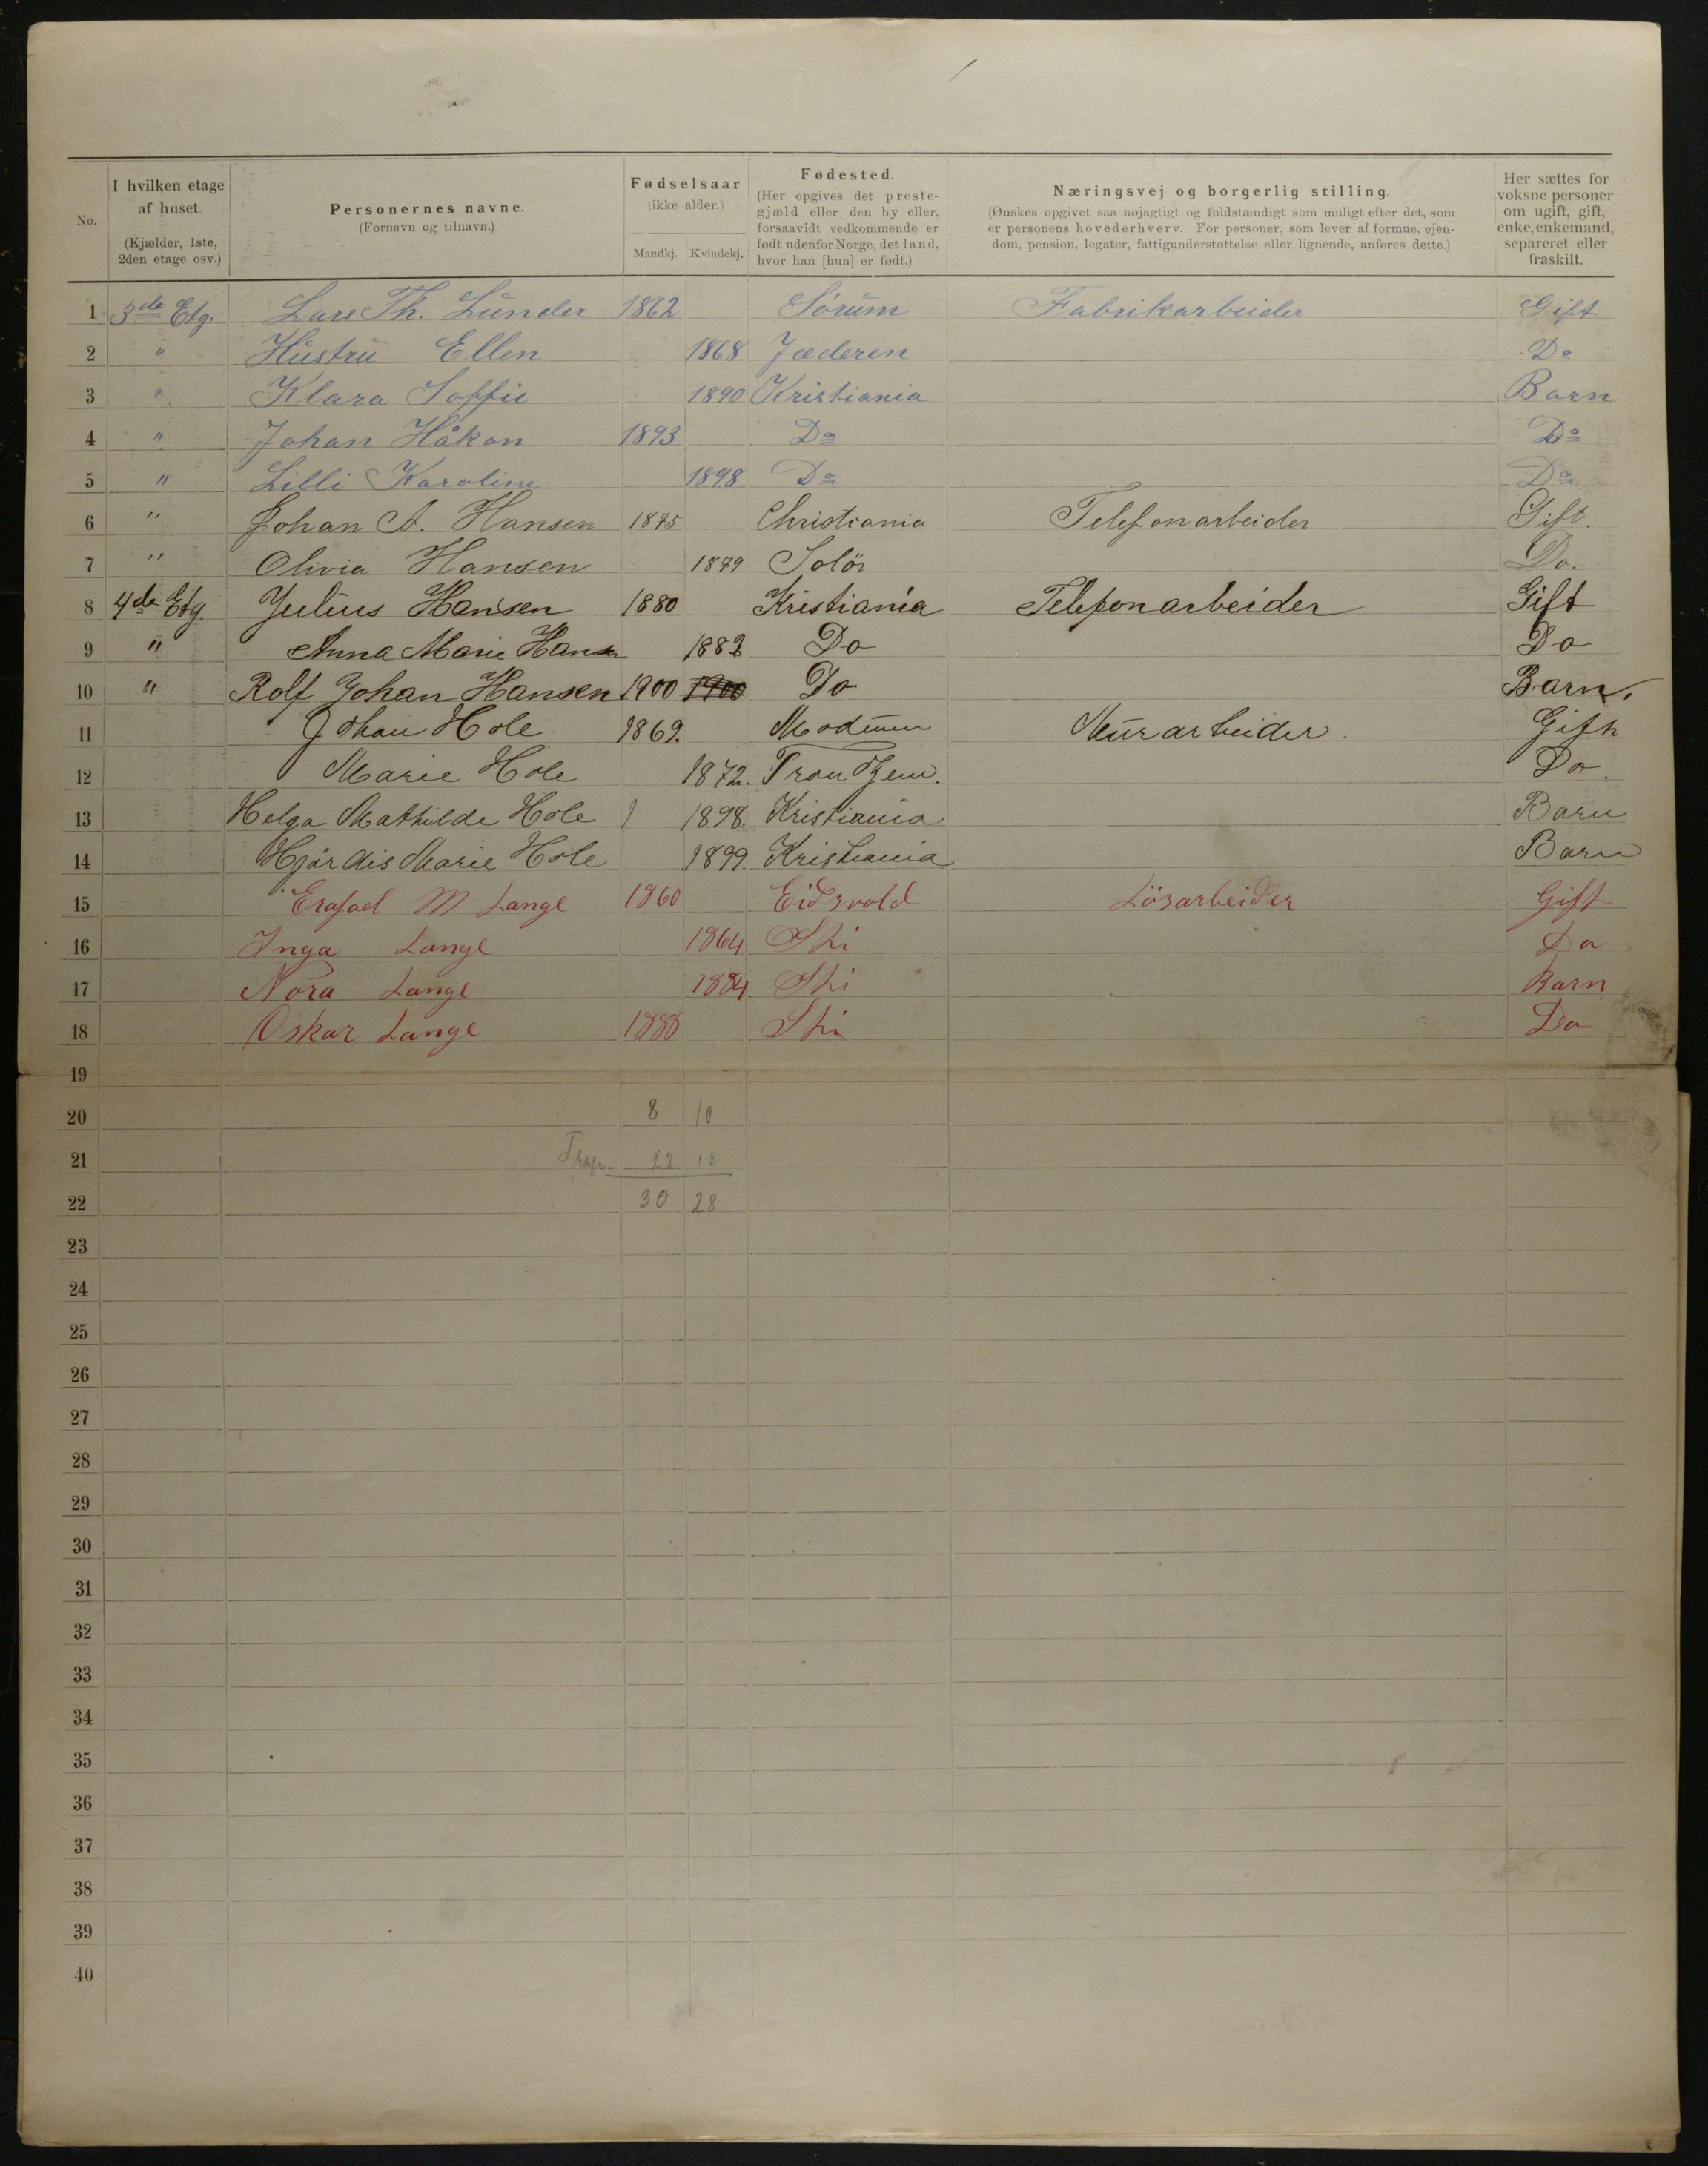 No. I hvilken etage af huset. (Kjælder, 1ste, 2den etage osv.) Personernes navne. (Fornavn og tilnavn.) Fødselsaar (ikke alder.) Mandkj. Kvindekj. Fødested. (Her opgives det prestegjæld eller den by eller, forsaavidt vedkommende er født udenfor Norge, det land, hvor han [hun] er født.) Næringsvej og borgerlig stilling. (Ønskes opgivet saa nøjagtigt og fuldstændigt som muligt efter det, som er personens hovederhverv. For personer, som lever af formue, ejendom, pension, legater, fattigunderstøttelse eller lignende, anføres dette.) Her sættes for voksne personer om ugift, gift, enke, enkemand, separeret eller fraskilt.
1 3de Etg. Lars Th. Lunder 1862 Sørum Fabrikarbeider Gift
2 " Hustru Ellen 1868 Jæderen Do
3 " Klara Soffie 1890 Kristiania Barn
4 " Johan Håkon 1893 Do Do
5 " Lilli Karoline 1898 Do Do
6 " Johan A. Hansen 1875 Christiania Telefonarbeider Gift.
7 " Olivia Hansen 1879 Solör Do.
8 4de Etg. Julius Hansen 1880 Kristiania Telefonarbeider Gift
9 " Anna Marie Hansen 1882 Do Do
10 " Rolf Johan Hansen 1900 1900 Do Barn.
11 Johan Hole 1869. Modum Murarbeider. Gift
12 Marie Hole 1872. Trondhjem. Do.
13 Helga Mathilde Hole 1 1898. Kristiania Barn
14 Hjördis Marie Hole 1899. Kristiania Barn
15 M Lange 1860 Eidsvold Lösarbeider Gift
16 Inga Lange 1864 Ski Do
17 Nora Lange 1884 Ski Barn
18 Oskar Lange 1888 Ski Do
19
20 8 10
21 22 18
22 30 28
23
24
25
26
27
28
29
30
31
32
33
34
35
36
37
38
39
40